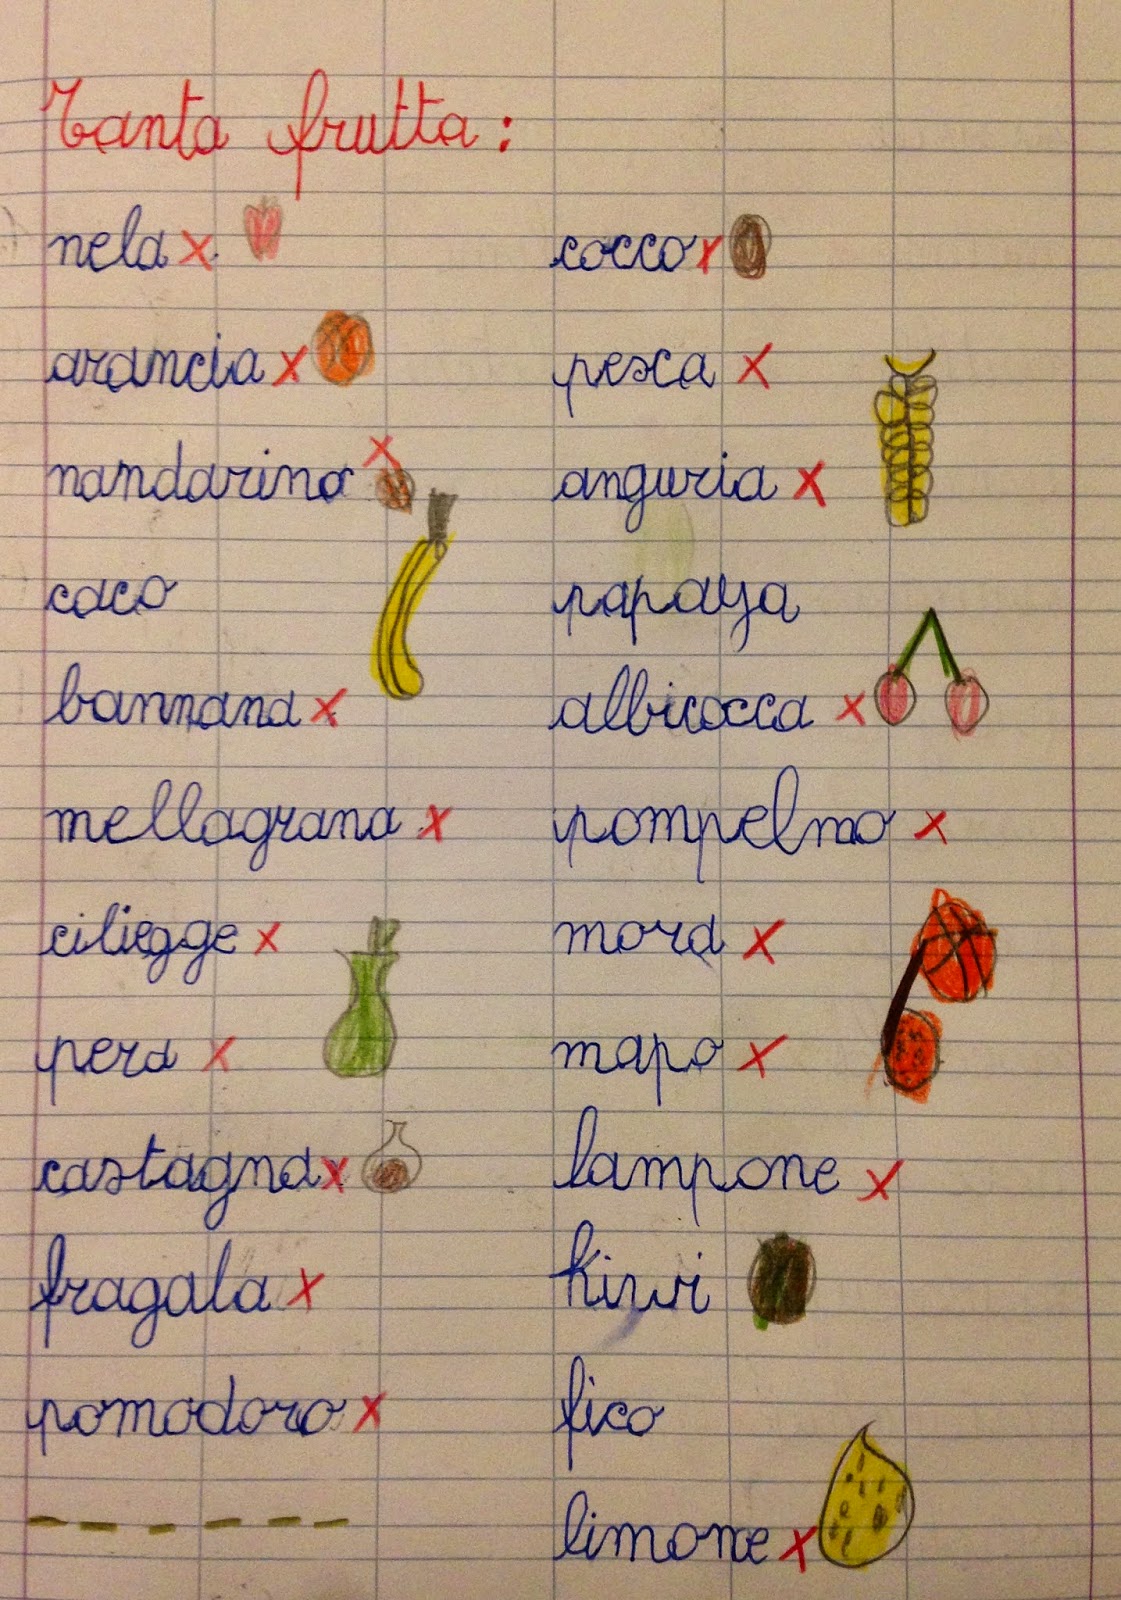 Tanta frutta:
nela
arancia
nandarino
caco
bannana
mellagrana
ciliegge
pera
castagna
fragala
pomodoro
cocco
pesca
anguria
papaya
albicocca
pompelmo
mora
mapo
lampone
kiwi
fico
limone